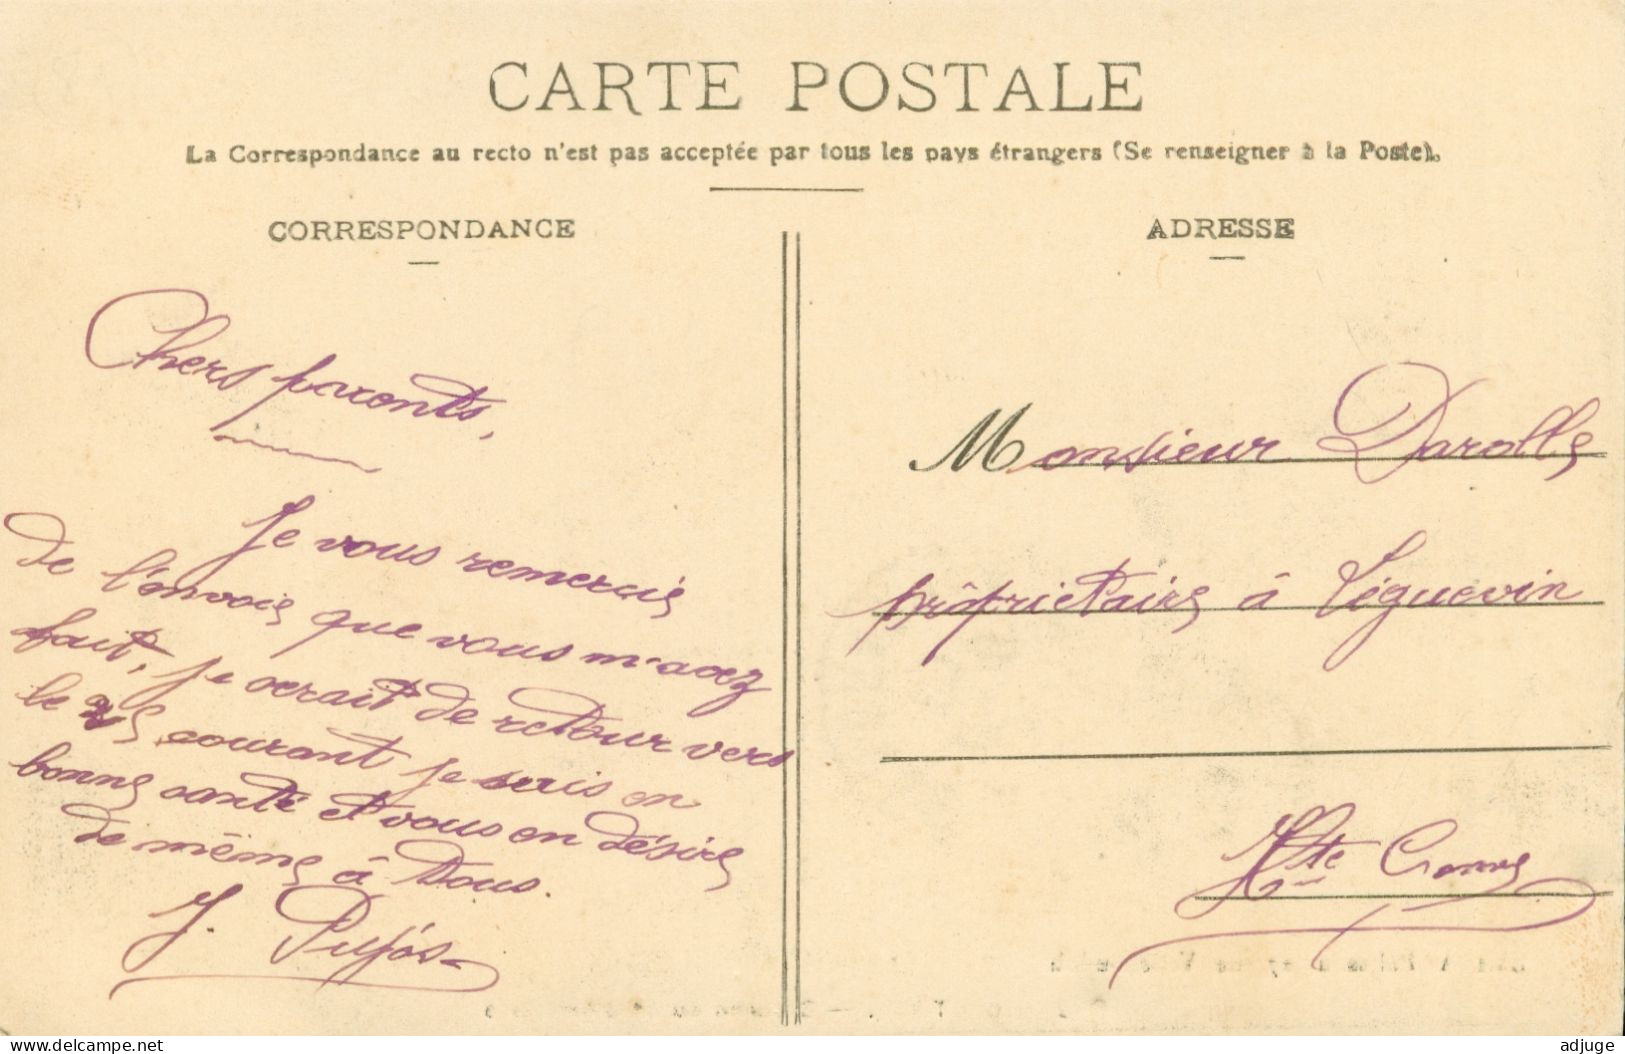 CARTE POSTALE
La Correspondance au recto n'est pas acceptée par tous les pays étrangers (Se renseigner à la Poste).
CORRESPONDANCE
Chers parents,
Je vous remercie
de l'envoie que vous m'avez
fait, je serait de retour vers
le courant je suis en
bonne santé et vous en désire
de même à tous.
J. Pujos
ADRESSE
Monsieur Darolle
propriétaire à Léguevin
Hte Garonne
delcampe.net
adjuge